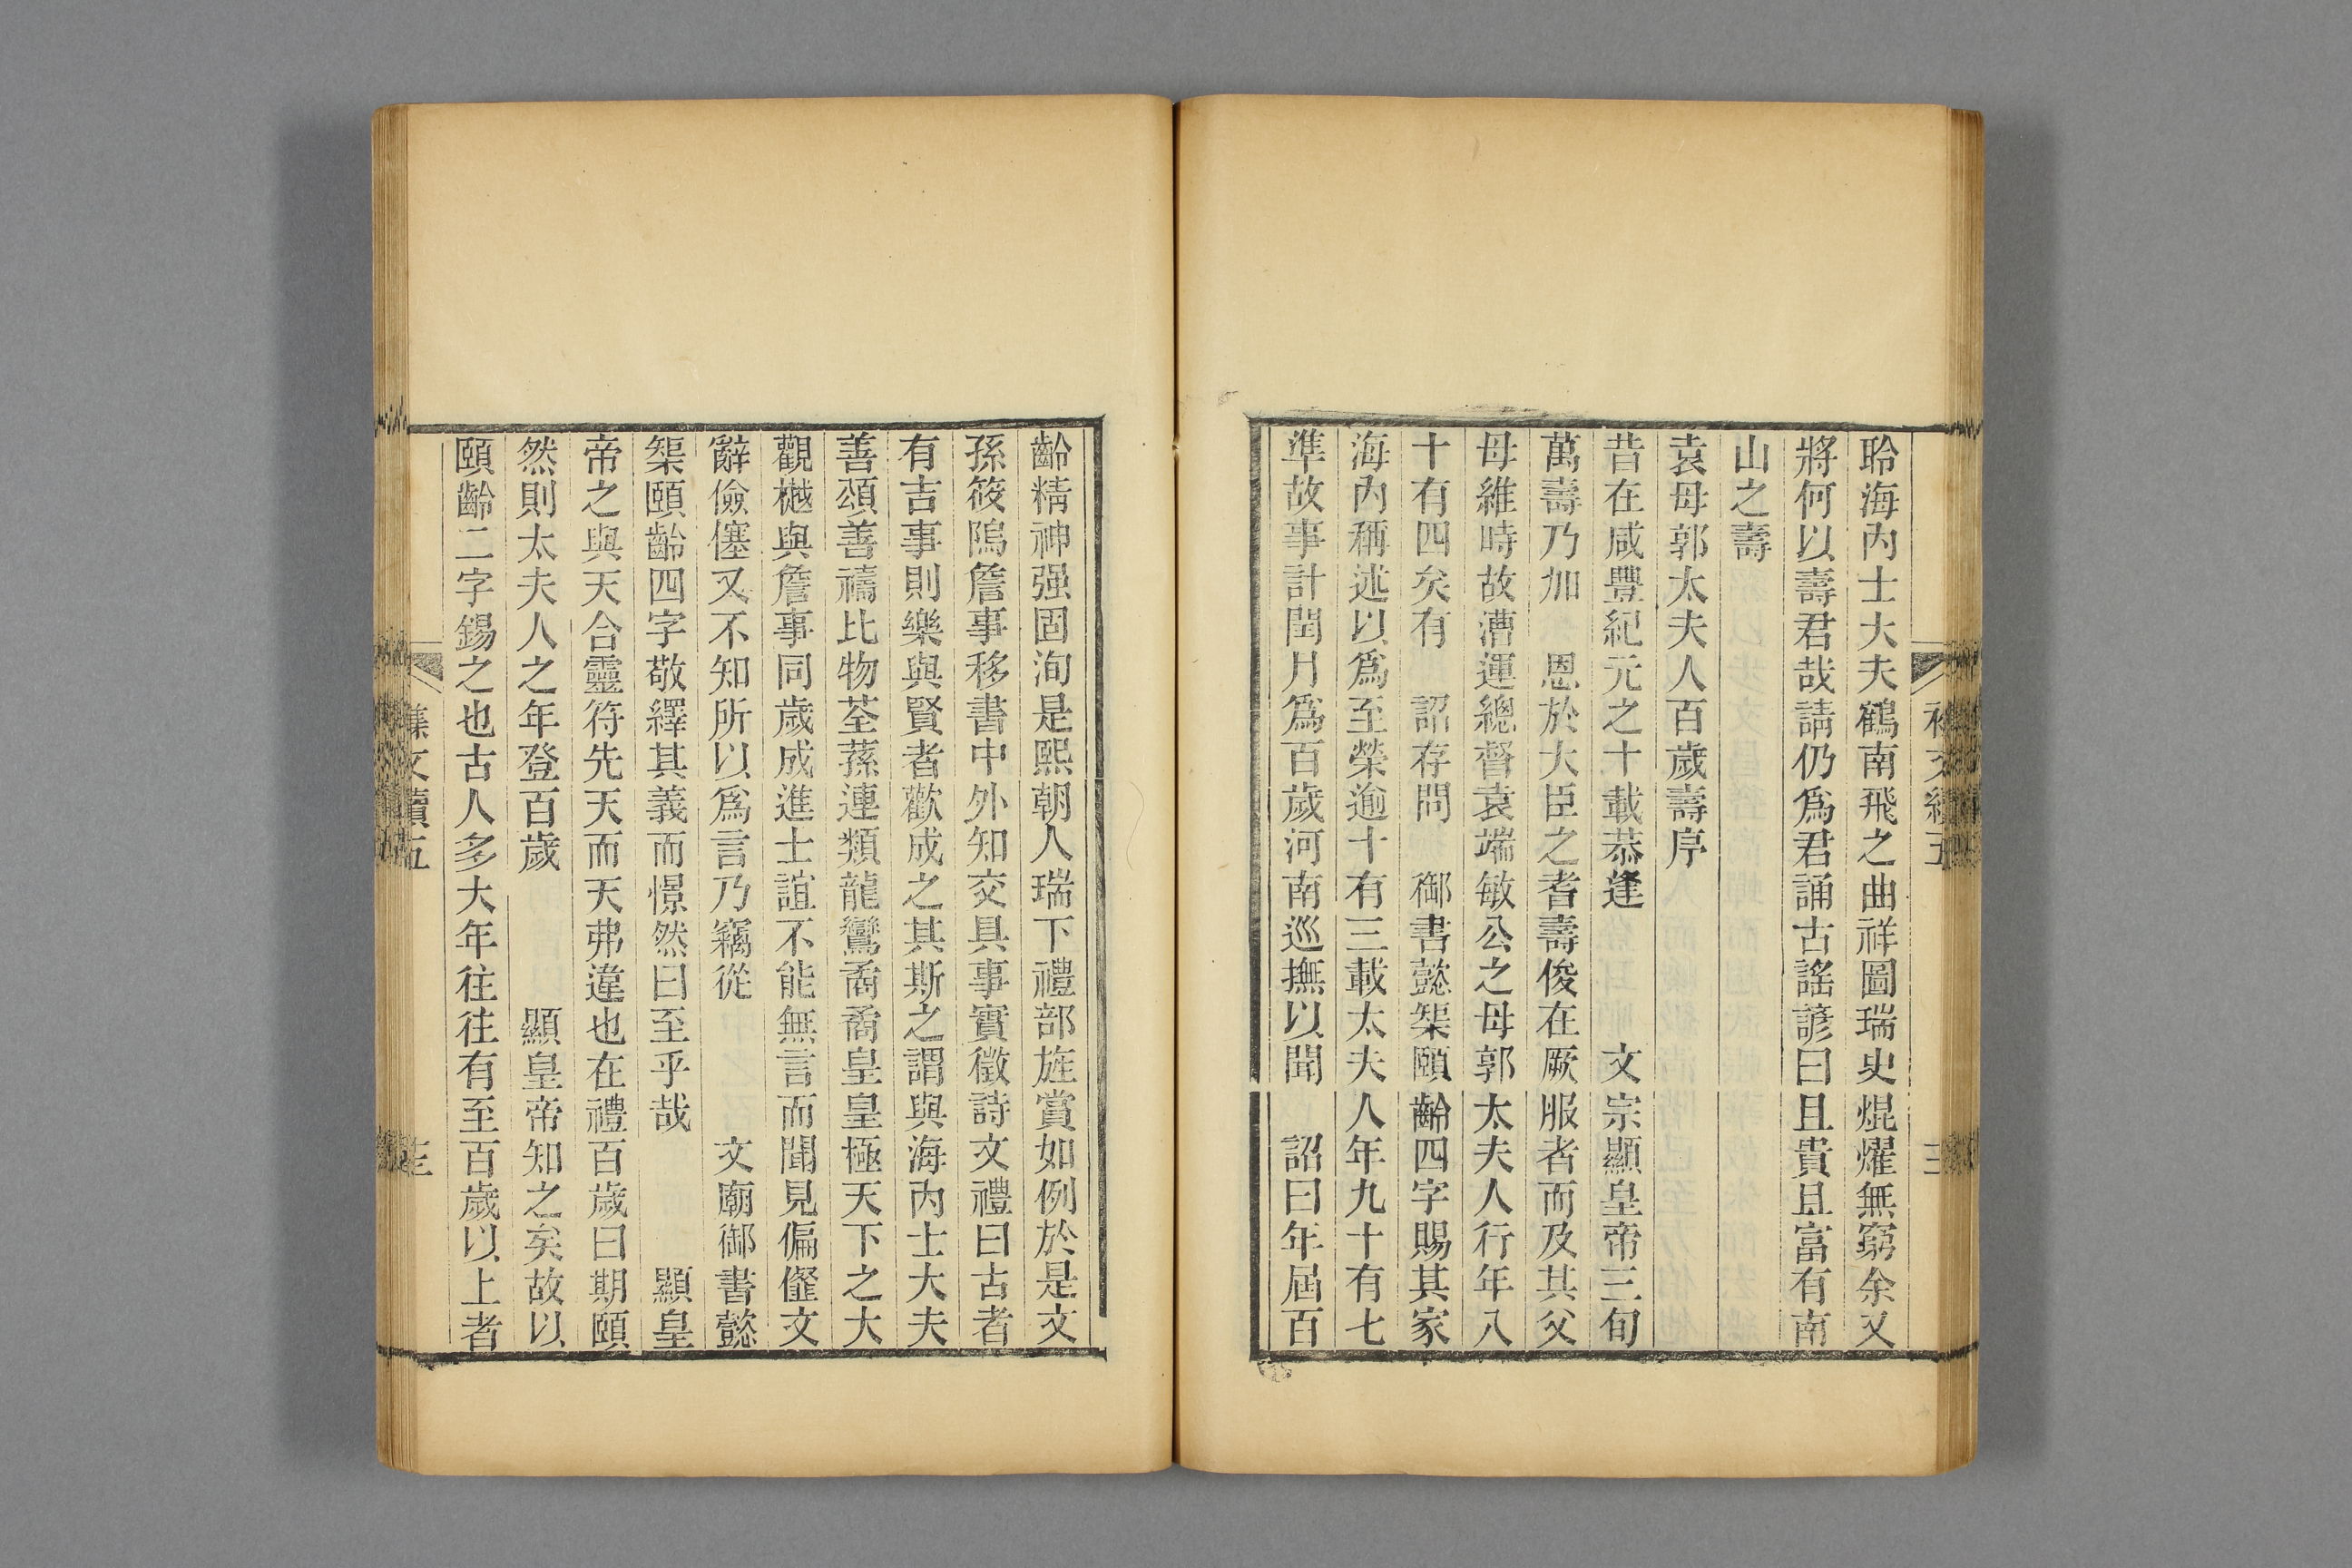 聆海內士大夫鶴南飛之曲祥圖瑞史焜燿無窮余又
將何以壽君哉請仍爲君誦古謠諺曰且貴且富有南
山之壽
袁母郭太夫人百歲壽序
昔在咸豐紀元之十載恭逢　　　文宗顯皇帝三旬
萬壽乃加　恩於大臣之耆壽俊在厥服者而及其父
母維時故漕運總督袁端敏公之母郭太夫人行年八
十有四矣有　詔存問　御書懿榘頤齡四字賜其家
海內稱述以爲至榮逾十有三載太夫人年九十有七
準故事計閏月爲百歲河南巡撫以聞　詔曰年屆百
齡精神强固洵是熙朝人瑞下禮部旌賞如例於是文
孫筱隖詹事移書中外知交具事實徵詩文禮曰古者
有吉事則樂與賢者歡成之其斯之謂與海內士大夫
善頌善禱比物荃蓀連類龍鸞矞矞皇皇極天下之大
觀樾與詹事同歲成進士誼不能無言而聞見偏僿文
辭儉僿又不知所以爲言乃竊從　　　文廟御書懿
榘頤齡四字敬繹其義而憬然曰至乎哉　　　顯皇
帝之與天合靈符先天而天弗違也在禮百歲曰期頤
然則太夫人之年登百歲　　　顯皇帝知之矣故以
頤齡二字錫之也古人多大年往往有至百歲以上者
文續五